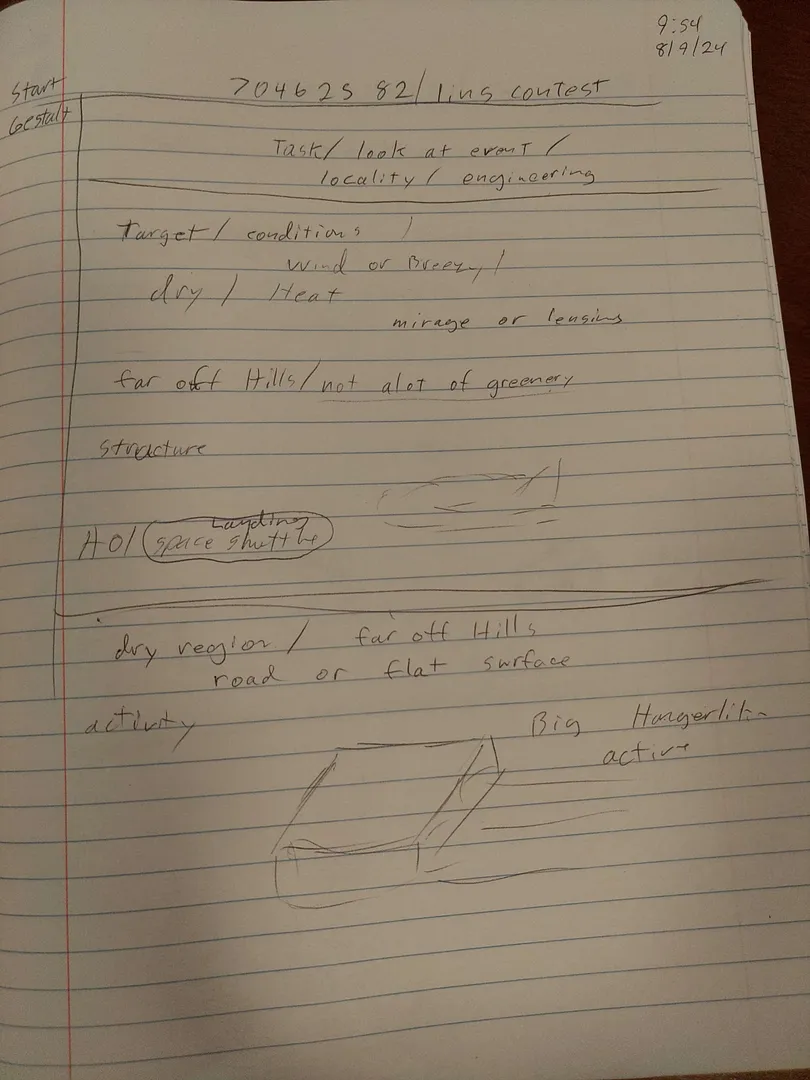 9:54
8/9/24
Start
Gestalt
7046 25 82/ lins contest
Task/ look at event/
locality/ engineering
Target/ conditions /
Wind or Breezy/
dry / Heat
mirage or lensins
far off Hills/not alot of greenery
structure
Landing
AOl space shutthe
dry region / far off Hills
road or flat surface
activity
Big
active